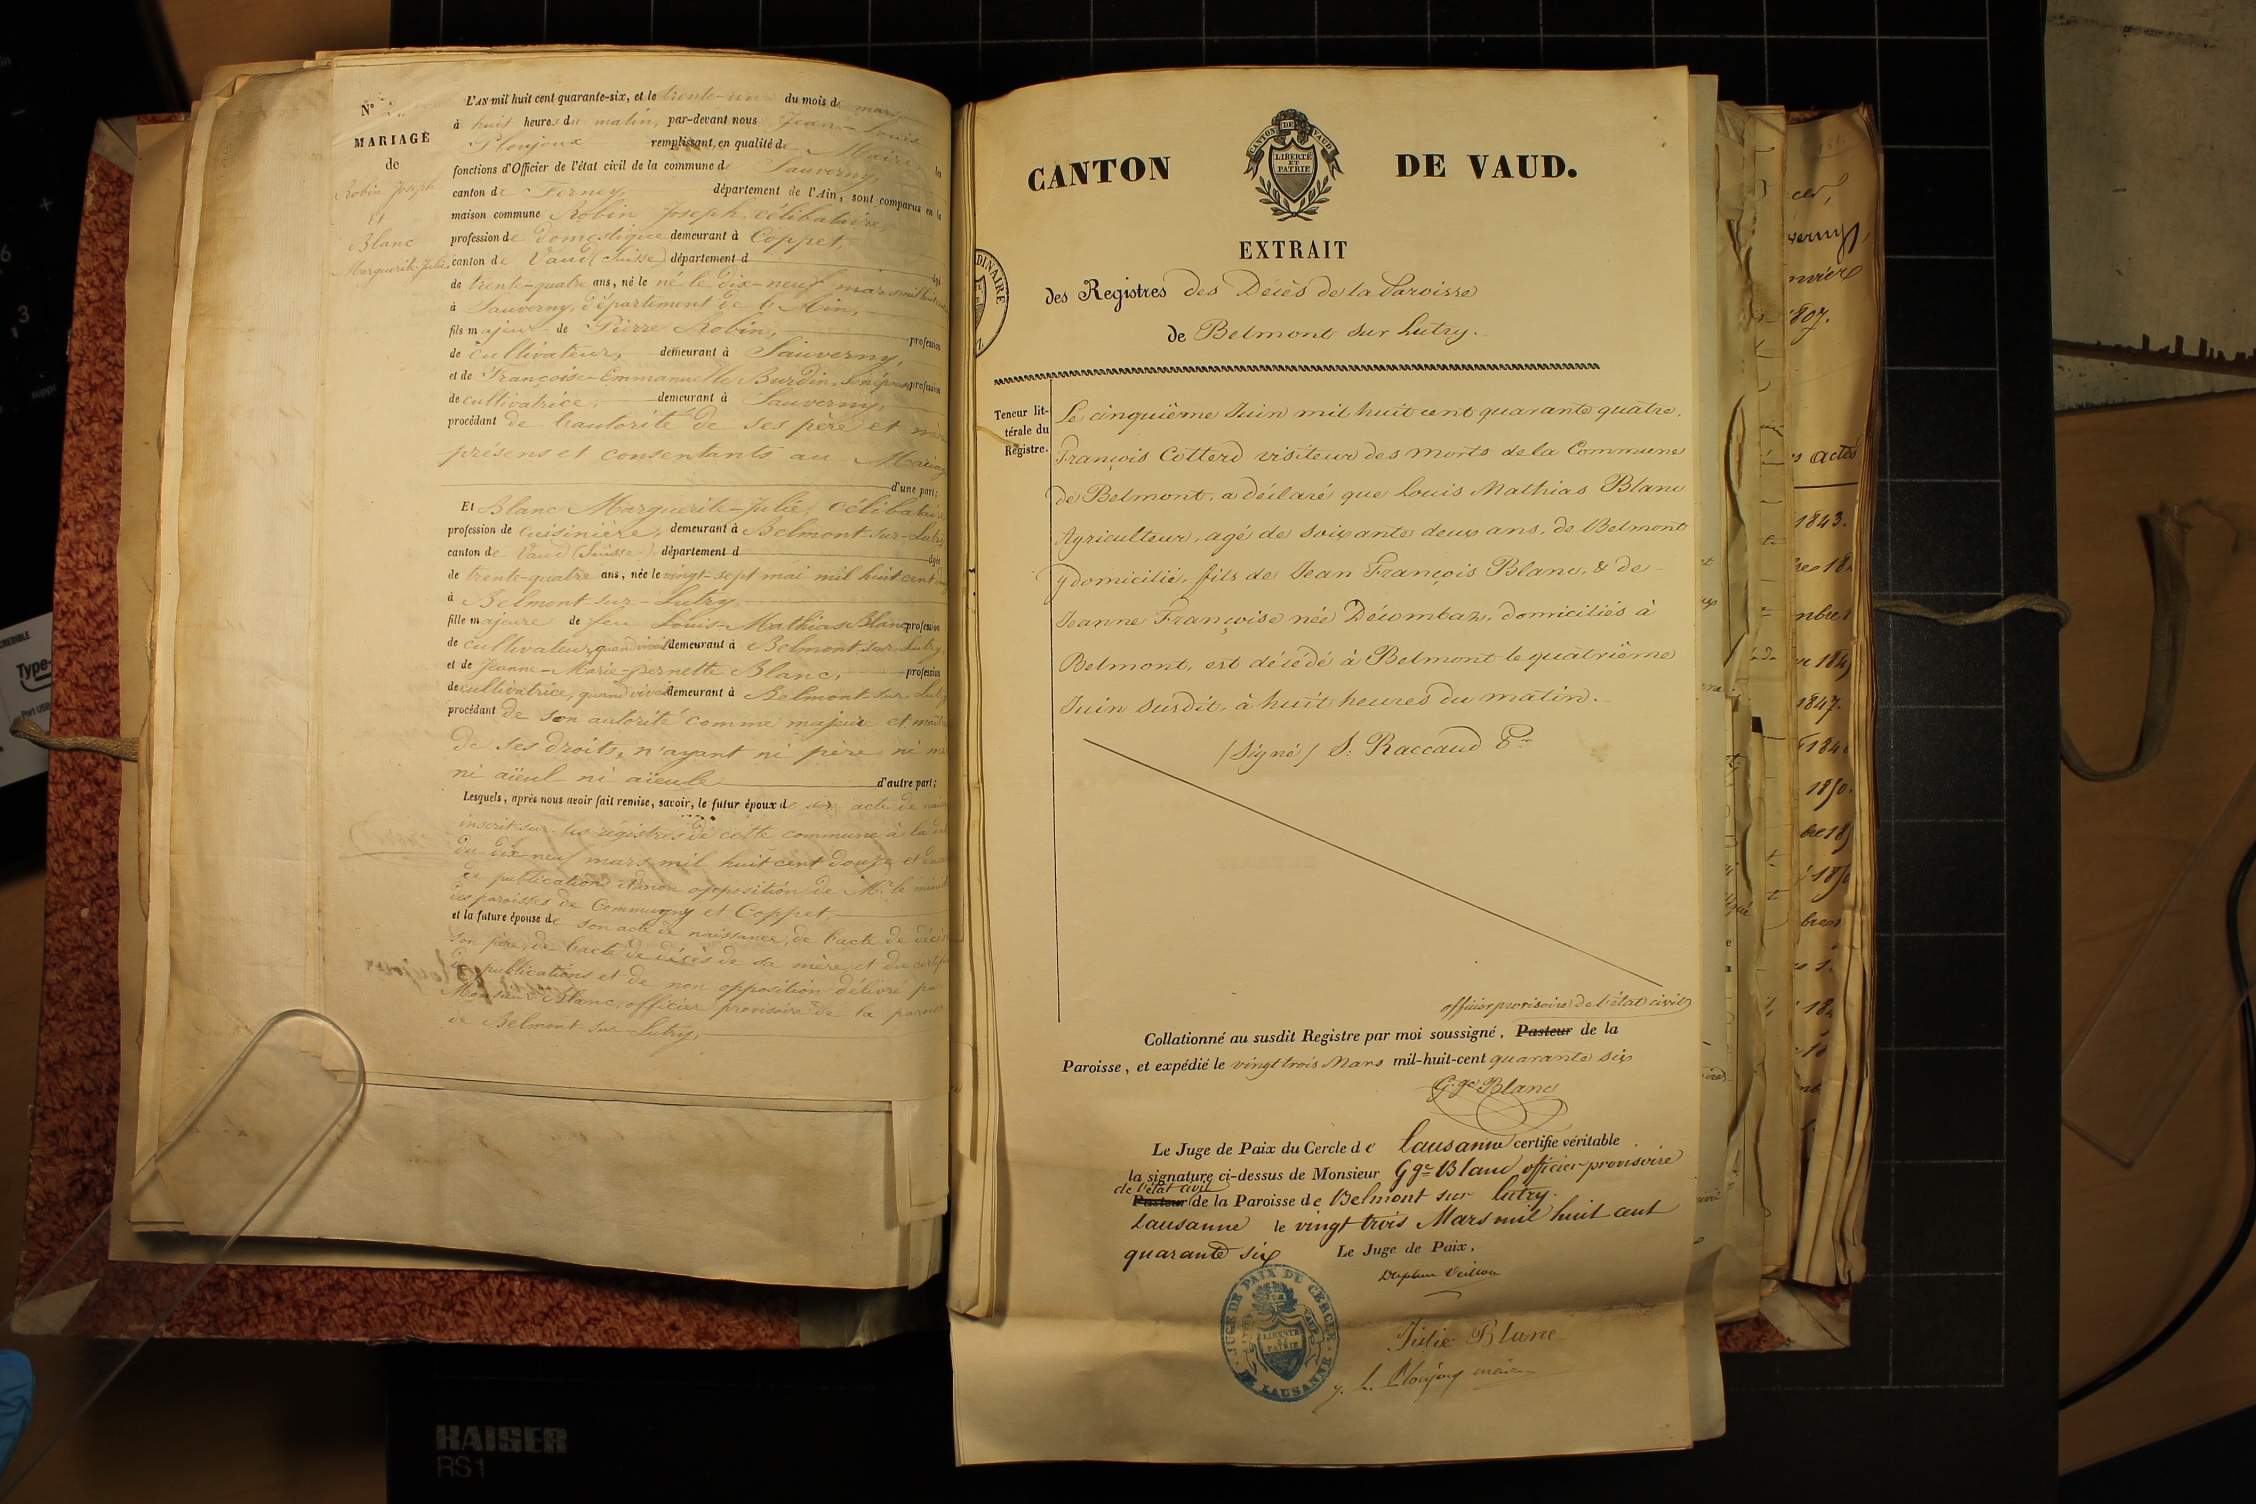 N°
MARIAGE
de
Robin Joseph
et
Blanc
Marguerite-Julie
L'AN mil huit cent quarante-six, et le trente-un du mois de mars
à huit heures du matin, par-devant nous Jean-Louis
Ploujoux remplissant, en qualité de Maire les
fonctions d'Officier de l'état civil de la commune de Sauverny,
canton de Ferney, département de l'Ain, sont comparus en la
maison commune Robin Joseph, célibataire,
profession de domestique demeurant à Coppet,
canton de Vaud (Suisse) département d
de trente-quatre ans, né le né le dix-neuf mars mil huit cent
à Sauverny, département de l'Ain,
fils majeur de Pierre Robin, profession
de cultivateur, demeurant à Sauverny,
et de Françoise-Emmanuelle Burdin, son épouse profession
de cultivatrice, demeurant à Sauverny,
procédant de l'autorité de ses père et mère
présens et consentants au Mariage
d'une part;
Et Blanc Marguerite-Julie, célibataire
profession de cuisinière, demeurant à Belmont-sur-Lutry
canton de Vaud (Suisse) département d
âgée
de trente-quatre ans, née le vingt-sept mai mil huit cent
à Belmont-sur-Lutry
fille majeure de feu Louis-Mathias Blanc profession
de cultivateur quand vivait demeurant à Belmont-sur-Lutry,
et de Jeanne-Marie-pernette Blanc, profession
de cultivatrice, quand vivait demeurant à Belmont-sur-Lutry
procédant de son autorité comme majeure et
de ses droits, n'ayant ni père ni
ni aïeul ni aïeule d'autre part;
Lesquels, après nous avoir fait remise, savoir, le futur époux de son acte de
inscrit sur les régistres de cette commune à la
du dix-neuf mars mil huit cent douze et
de publications et non opposition de Mr le
des paroisses de Commugny et Coppet,
et la future épouse de son acte de naissance, de l'acte de décès
son père, de l'acte de décès de sa mère et du
de publications et de non opposition délivré par
Monsieur Blanc, officier provisoire de la paroisse
de Belmont-sur-Lutry,
CANTON DE VAUD.
CANTON DE VAUD
LIBERTÉ
ET
PATRIE
EXTRAIT
des Registres des Décès de la Paroisse
de Belmont sur Lutry.
Teneur lit-
térale du
Registre.
Le cinquième Juin mil huit cent quarante quatre,
François Cotterd visiteur des morts de la Commune
de Belmont, a déclaré que Louis Mathias Blanc
Agriculteur, agé de soixante deux ans, de Belmont
y domicilié, fils de Jean François Blanc, & de
Jeanne Françoise née Décombaz, domiciliés à
Belmont, est décédé à Belmont le quatrième
Juin susdit, à huit heures du matin.
(signé) S. Raccaud Pr
officier provisoire de l'état civil
Collationné au susdit Registre par moi soussigné, Pasteur de la
Paroisse, et expédié le vingt trois Mars mil-huit-cent quarante six
Gge Blanc
Le Juge de Paix du Cercle de Lausanne certifie véritable
la signature ci-dessus de Monsieur Gge Blanc officier provisoire
de l'état civil
Pasteur de la Paroisse de Belmont sur Lutry.
Lausanne le vingt trois Mars mil huit cent
quarante six Le Juge de Paix,
JUGE DE PAIX DU CERCLE DE LAUSANNE
LIBERTÉ
ET
PATRIE
Julie Blanc
J. L. Ploujoux maire
1807.
actes
1843.
1847.
1850.
KAISER
RS1